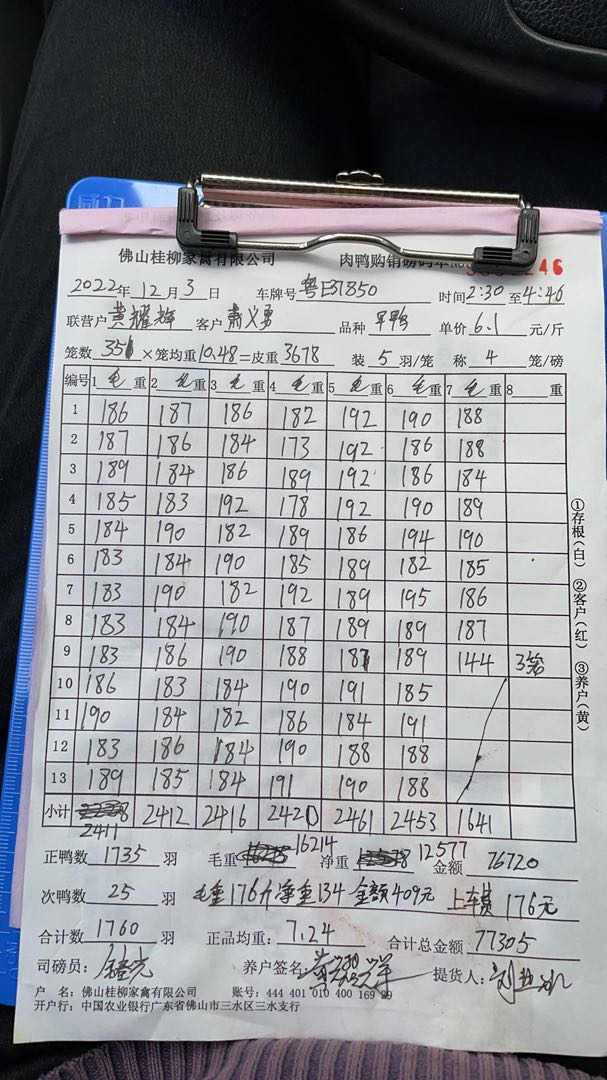 佛山桂柳家禽有限公司 肉鸭购销磅码单 246
2022年12月3日 车牌号 时间2:30至4:46
联营户黄耀辉 客户萧义勇 品种 单价6.1元/斤
笼数351×笼均重10.48=皮重3678 装5羽/笼 称4笼/磅
编号 1毛重 2毛重 3毛重 4毛重 5毛重 6毛重 7毛重 8重
1 186 187 186 182 192 190 188
2 187 186 184 173 192 186 188
3 189 184 186 189 192 186 184
4 185 183 192 178 192 190 189
5 184 190 182 189 186 194 190
6 183 184 190 185 189 182 185
7 183 190 182 192 189 195 186
8 183 184 190 187 189 189 187
9 183 186 190 188 187 189 144 3笼
10 186 183 184 190 191 185
11 190 184 182 186 184 191
12 183 186 184 190 188 188
13 189 185 184 191 190 188
小计 2411 2412 2416 2420 2461 2453 1641
正鸭数1735羽 毛重16214 净重12577 金额76720
次鸭数25羽 毛重176斤净重134 金额409元 上车费176元
合计数1760羽 正品均重:7.24 合计总金额77305
司磅员: 养户签名: 提货人:
户 名:佛山桂柳家禽有限公司 账号:444 401 010 400 169 29
开户行:中国农业银行广东省佛山市三水区三水支行
①存根(白) ②客户(红) ③养户(黄)